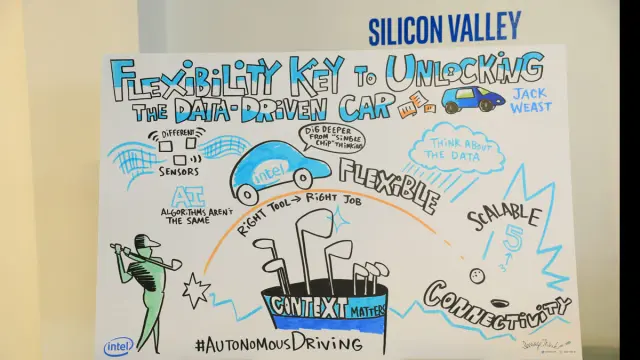 SILICON VALLEY
FLEXIBILITY KEY TO UNLOCKING
THE DATA-DRIVEN CAR
JACK
WEAST
DIFFERENT
SENSORS
AI
ALGORITHMS AREN'T
THE SAME
DIG DEEPER
FROM "SINGLE
CHIP" THINKING
intel
FLEXIBLE
RIGHT TOOL → RIGHT JOB
THINK ABOUT
THE DATA
SCALABLE
5
CONNECTIVITY
CONTEXT MATTERS
#AUTONOMOUSDRIVING
intel